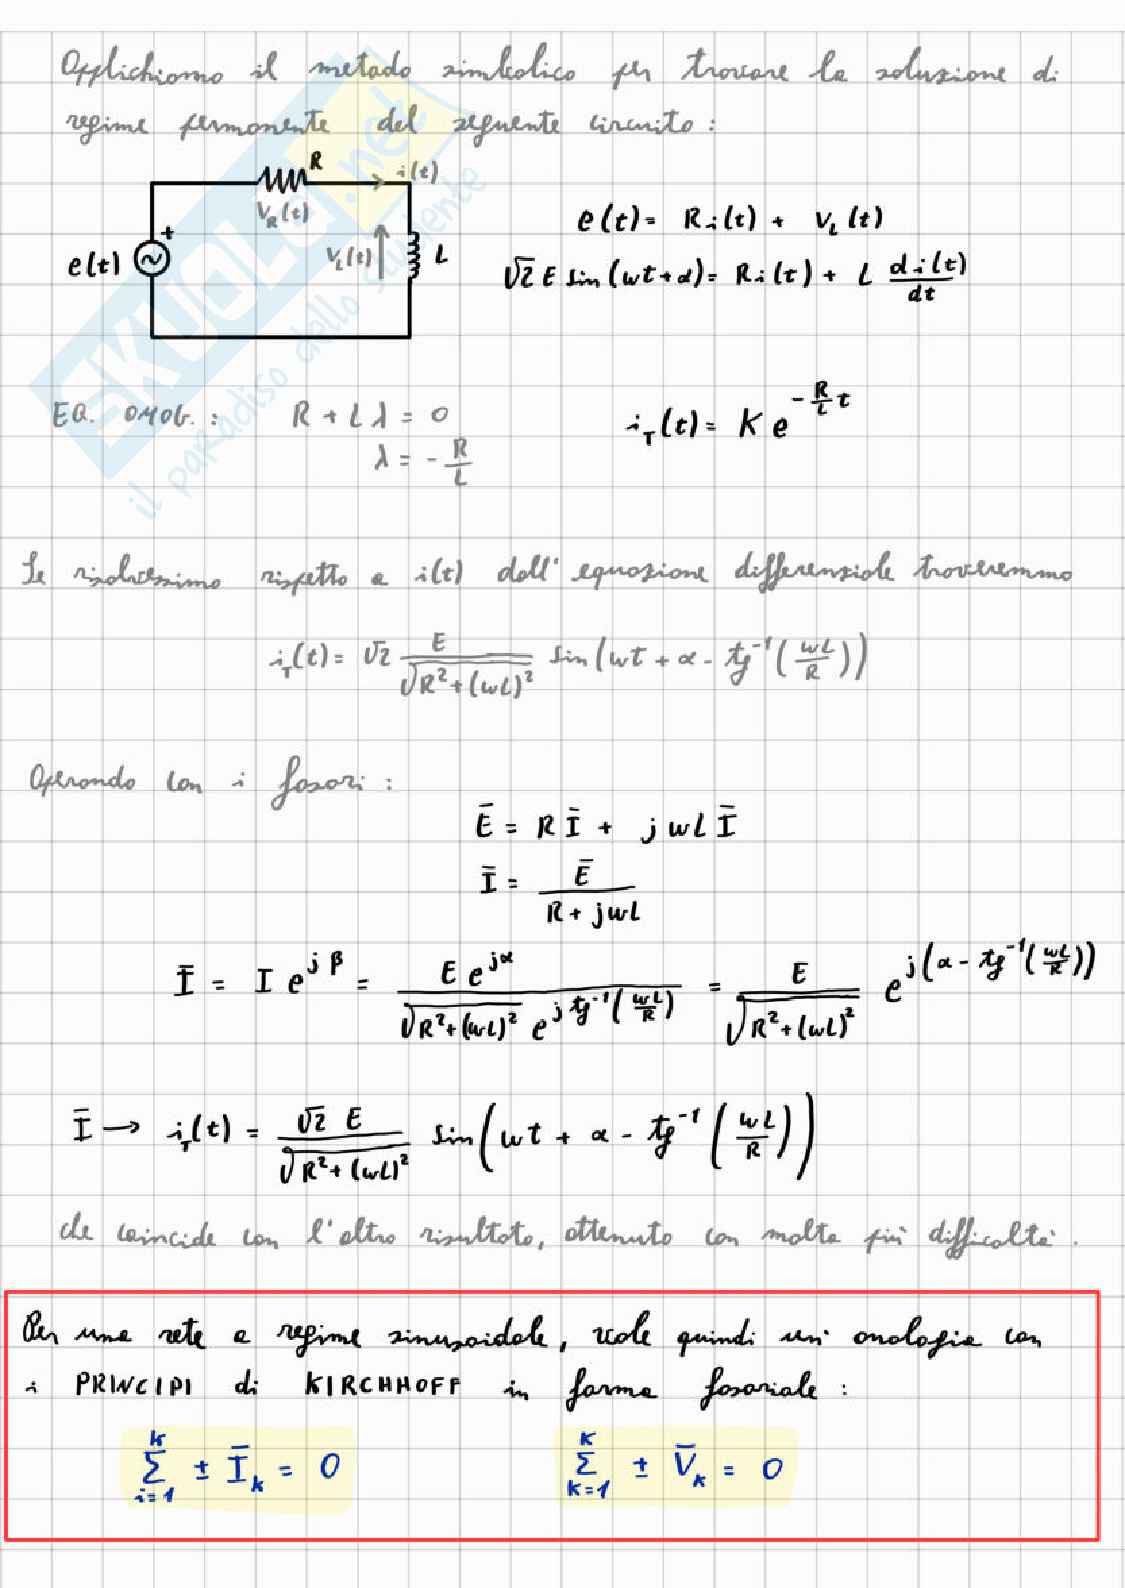 Applichiamo il metodo simbolico per trovare la soluzione di
regime permanente del seguente circuito:
R
i(t)
V_R(t)
+
e(t)
V_L(t)
L
e(t) = R i(t) + V_L(t)
√2 E sin(ωt+α) = R i(t) + L d i(t)/dt
EQ. OMOG.: R + L λ = 0
λ = - R/L
i_T(t) = K e^(-R/L t)
Se risolvessimo rispetto a i(t) dall'equazione differenziale troveremmo
i_T(t) = √2 E/√(R²+(ωL)²) sin(ωt + α - tg⁻¹(ωL/R))
Operando con i fasori:
Ē = R Ī + jωL Ī
Ī = Ē/(R + jωL)
Ī = I e^(jβ) = E e^(jα)/(√(R²+(ωL)²) e^(j tg⁻¹(ωL/R))) = E/√(R²+(ωL)²) e^(j(α - tg⁻¹(ωL/R)))
Ī → i_T(t) = √2 E/√(R²+(ωL)²) sin(ωt + α - tg⁻¹(ωL/R))
che coincide con l'altro risultato, ottenuto con molta più difficoltà.
Per una rete a regime sinusoidale, vale quindi un'analogia con
i PRINCIPI di KIRCHHOFF in forma fasoriale:
∑_{i=1}^{k} ± Ī_k = 0
∑_{k=1}^{K} ± V̄_k = 0
SKUOLA.net
il paradiso dello studente